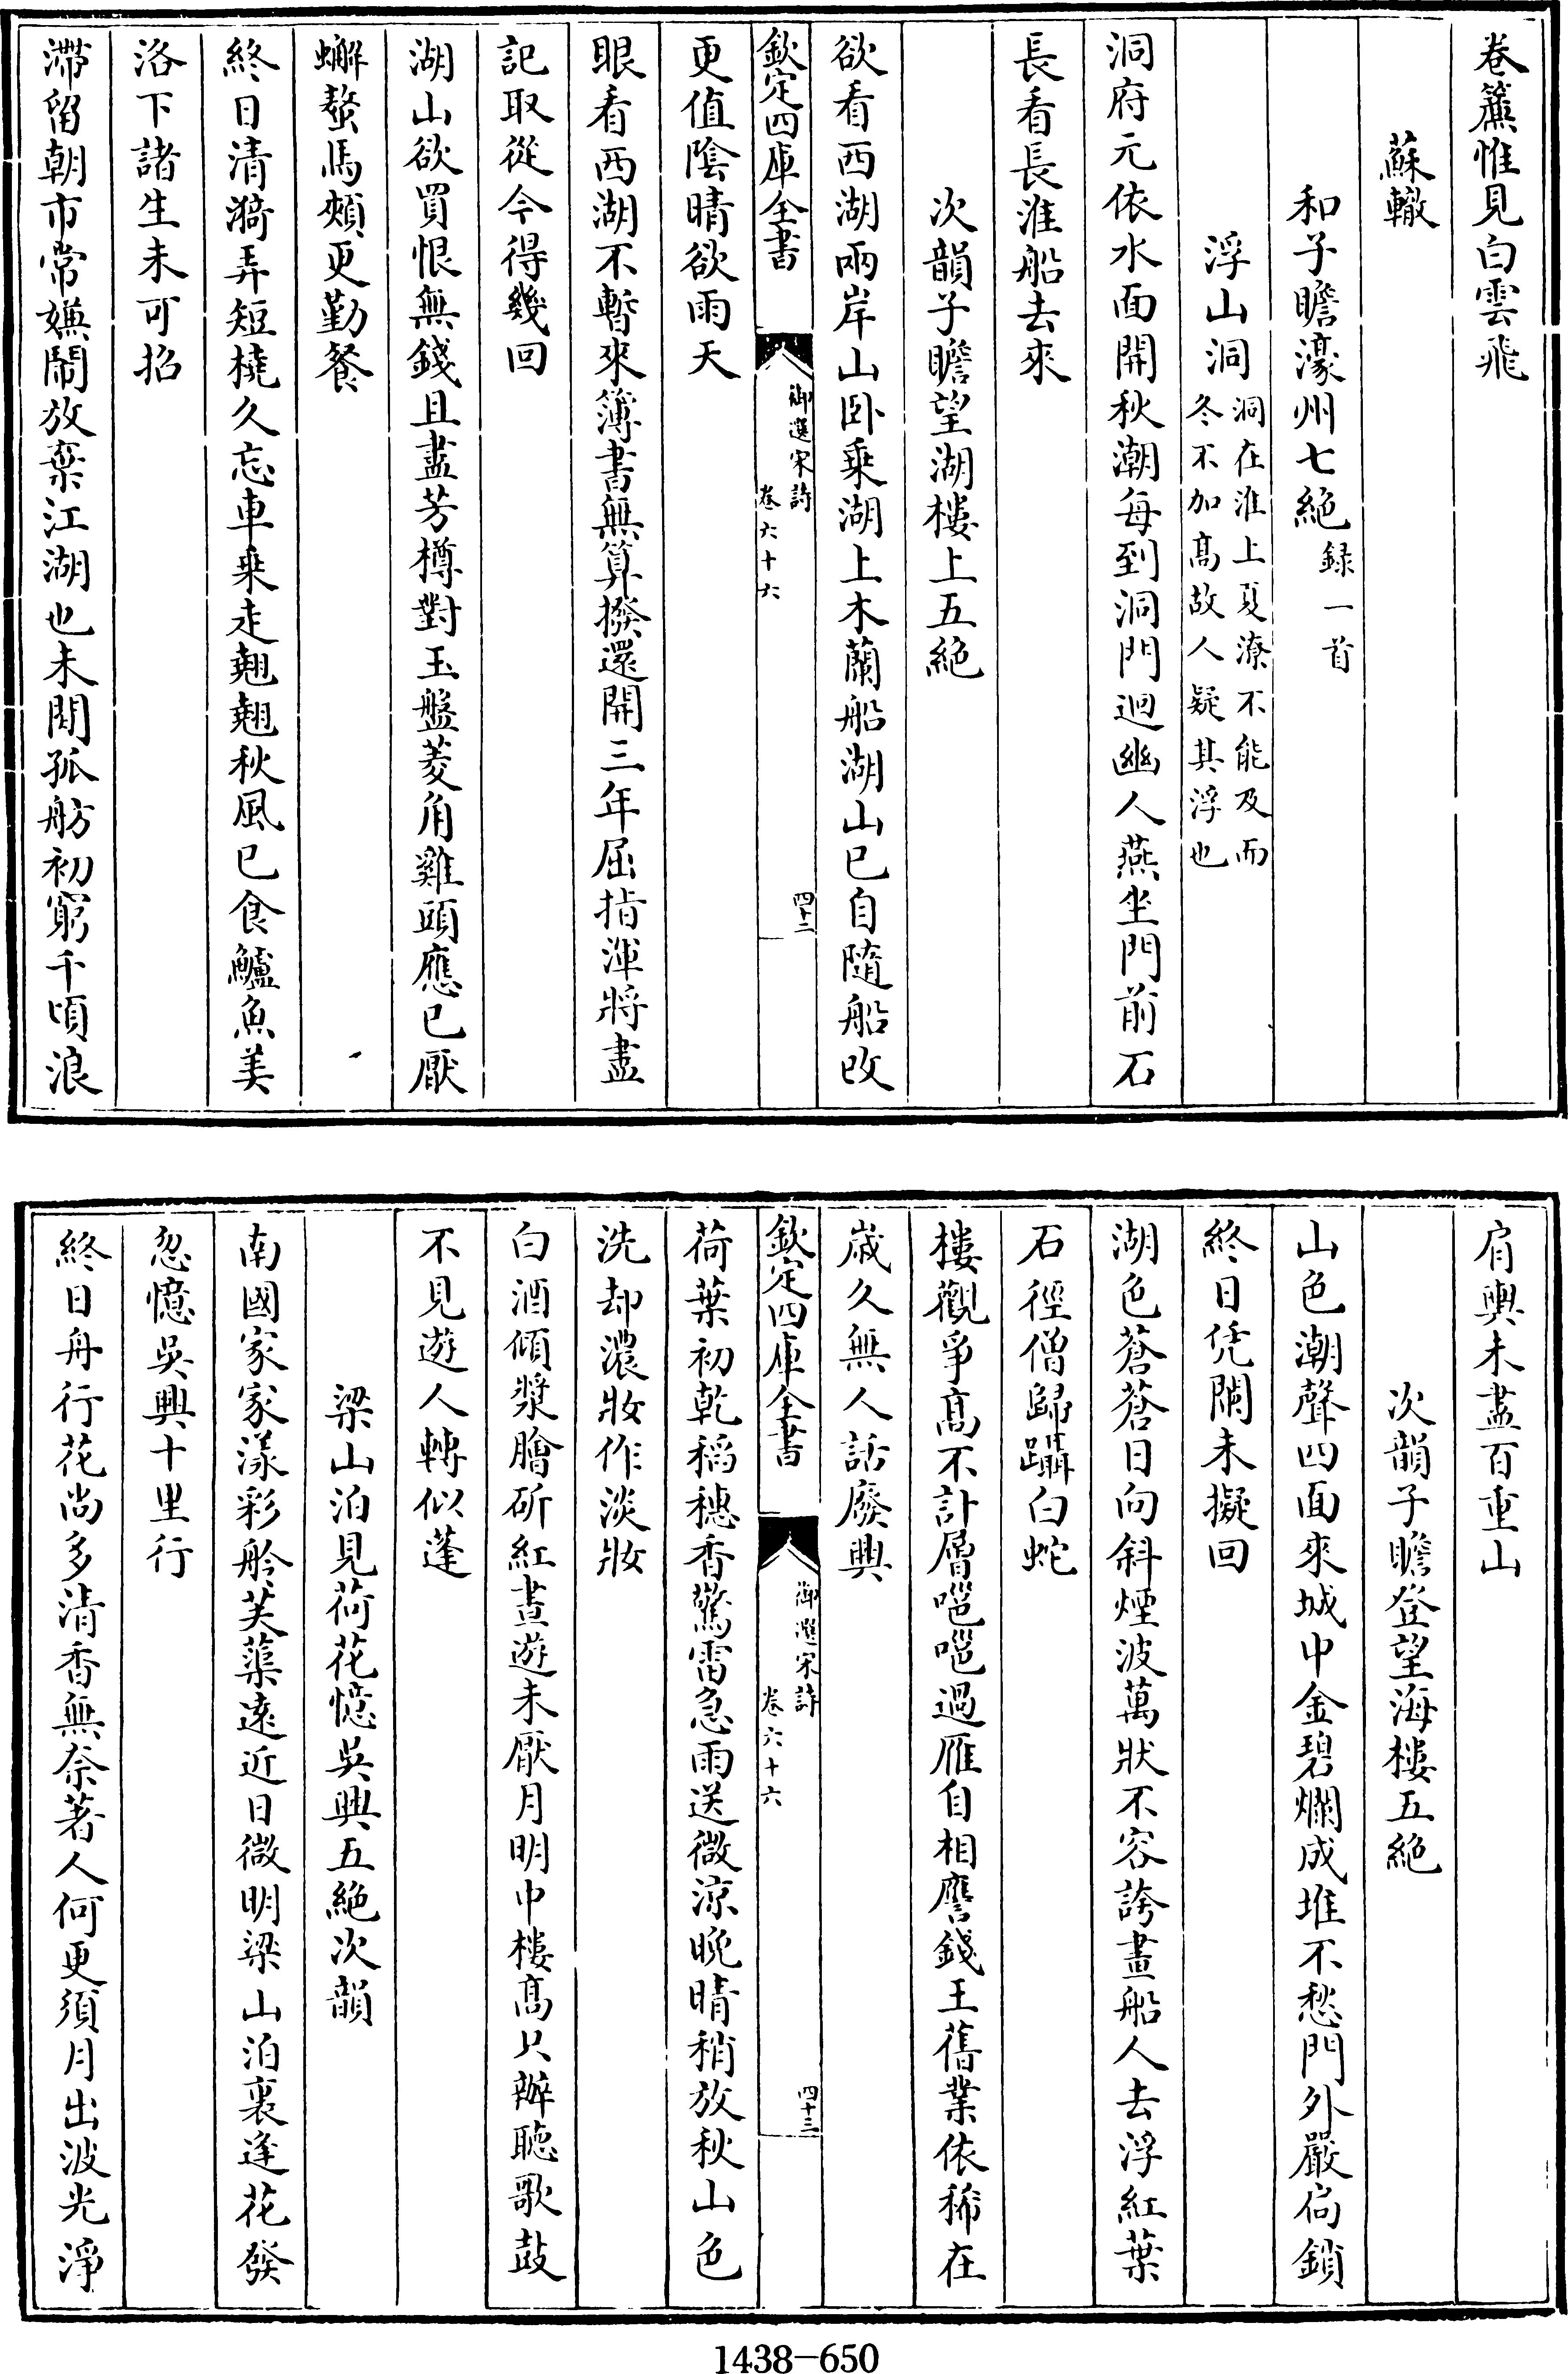 卷簾惟見白雲飛
蘇轍
和子瞻濠州七絶録一首
浮山洞洞在淮上夏潦不能及而
冬不加高故人疑其浮也
洞府元依水面開秋潮每到洞門迴幽人燕坐門前石
長看長淮船去來
次韻子瞻望湖樓上五絶
欲看西湖兩岸山卧乗湖上木蘭船湖山已自隨船改
更值陰晴欲雨天
欽定四庫全書
御選宋詩
卷六十六
四十二
眼看西湖不暫來簿書無算撥還開三年屈指渾將盡
記取從今得幾回
湖山欲買恨無錢且盡芳樽對玉盤菱角雞頭應已厭
蠏螯馬頰更勤餐
終日清漪弄短橈久忘車乗走翹翹秋風已食鱸魚美
洛下諸生未可招
滯留朝市常嫌鬧放棄江湖也未閒孤舫初窮千頃浪
肩輿未盡百重山
次韻子瞻登望海樓五絶
山色潮聲四面來城中金碧爛成堆不愁門外嚴扃鎖
終日凭闌未擬回
湖色蒼蒼日向斜煙波萬狀不容誇畫船人去浮紅葉
石徑僧歸躡白蛇
樓觀爭高不計層嗈嗈過雁自相譍錢王舊業依稀在
歳久無人話廢興
欽定四庫全書
御選宋詩
卷六十六
四十三
荷葉初乾稻穗香驚雷急雨送微涼晚晴稍放秋山色
洗却濃妝作淡妝
白酒傾漿膾斫紅晝遊未厭月明中樓高只辦聽歌鼓
不見遊人轉似蓬
梁山泊見荷花憶吳興五絶次韻
南國家家漾彩舲芙蕖遠近日微明梁山泊裏逢花發
忽憶吳興十里行
終日舟行花尚多清香無奈著人何更須月出波光淨
1438-650